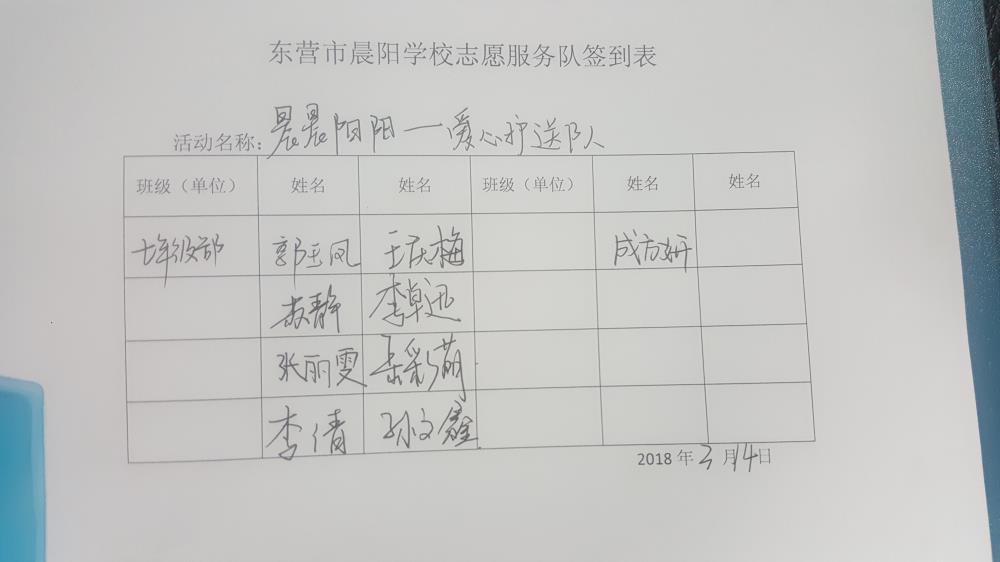 东营市晨阳学校志愿服务队签到表
活动名称：晨晨阳阳一爱心护送队
班级（单位） 姓名 姓名 班级（单位） 姓名 姓名
七年级部 郭玉凤 王庆梅 成方妍
静 李卓迅
张丽雯 岳彩萌
李倩 孙文鑫
2018年3月14日